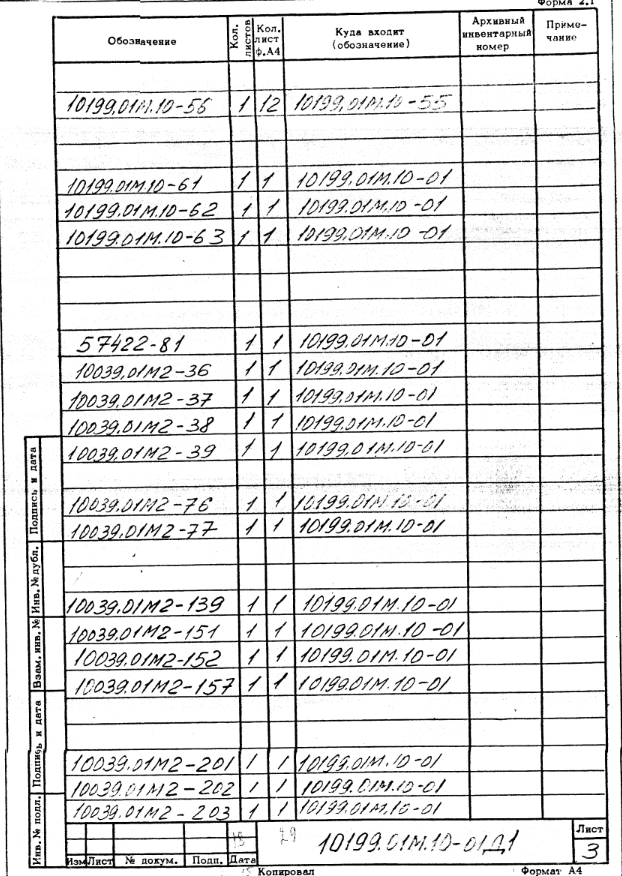 Форма 2.1
Обозначение Кол. листов Кол. лист ф.А4 Куда входит (обозначение) Архивный инвентарный номер Примечание
10199.01М.10-56 1 12 10199.01М.10-55
10199.01М.10-61 1 1 10199.01М.10-01
10199.01М.10-62 1 1 10199.01М.10-01
10199.01М.10-63 1 1 10199.01М.10-01
57422-81 1 1 10199.01М.10-01
10039.01М2-36 1 1 10199.01М.10-01
10039.01М2-37 1 1 10199.01М.10-01
10039.01М2-38 1 1 10199.01М.10-01
10039.01М2-39 1 1 10199.01М.10-01
10039.01М2-76 1 1 10199.01М.10-01
10039.01М2-77 1 1 10199.01М.10-01
10039.01М2-139 1 1 10199.01М.10-01
10039.01М2-151 1 1 10199.01М.10-01
10039.01М2-152 1 1 10199.01М.10-01
10039.01М2-157 1 1 10199.01М.10-01
10039.01М2-201 1 1 10199.01М.10-01
10039.01М2-202 1 1 10199.01М.10-01
10039.01М2-203 1 1 10199.01М.10-01
Подпись и дата
Инв. № дубл.
Взам. инв. №
Подпись и дата
Инв. № подл.
10199.01М.10-01Д1
Лист
3
Изм Лист № докум. Подп. Дата
Копировал Формат А4